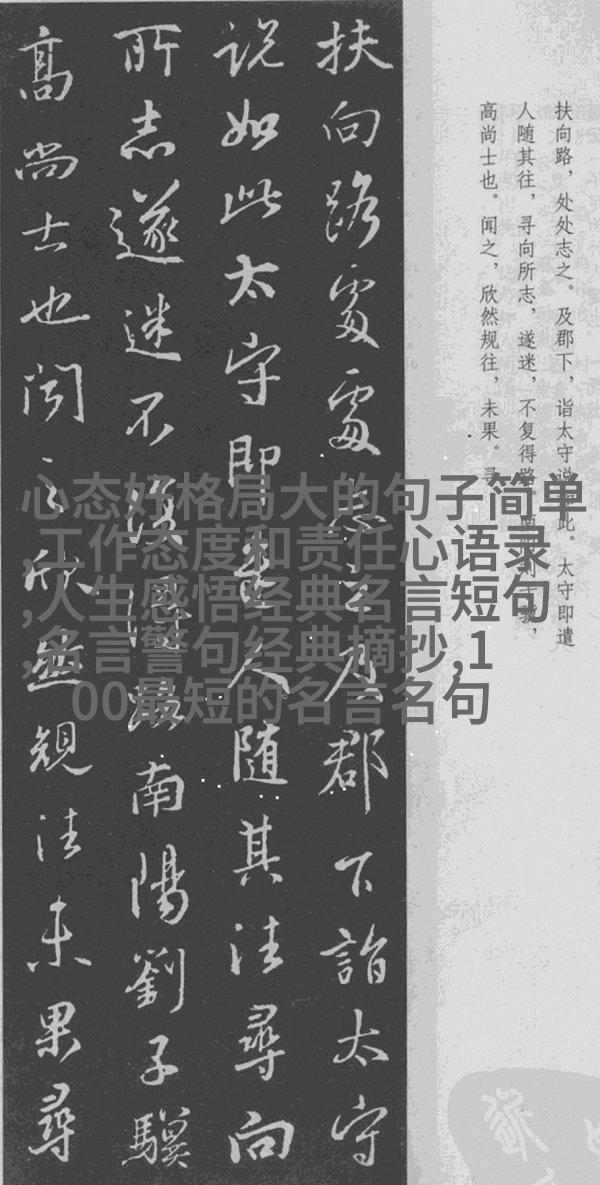 扶向路，处处志之。及郡下，诣太守说如此。太守即遣
人随其往，寻向所志，遂迷，不复得路。南阳刘子骥，
高尚士也。闻之，欣然规往，未果。寻
扶向路處處志之及郡下詣太守
説如此太守即遣人随其往尋向
所志遂迷不復得路南陽劉子驥
高尚士也聞之欣然規往未果尋
心态好格局大的句子简单
,工作态度和责任心语录
,人生感悟经典名言短句
,名言警句经典摘抄,1
00最短的名言名句